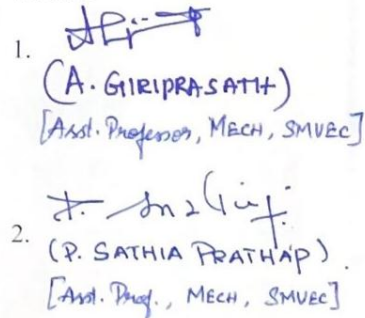 1.
(A. GIRIPRASATH)
[Asst. Professor, MECH, SMVEC]
2.
(P. SATHIA PRATHAP).
[Asst. Prof., MECH, SMVEC]